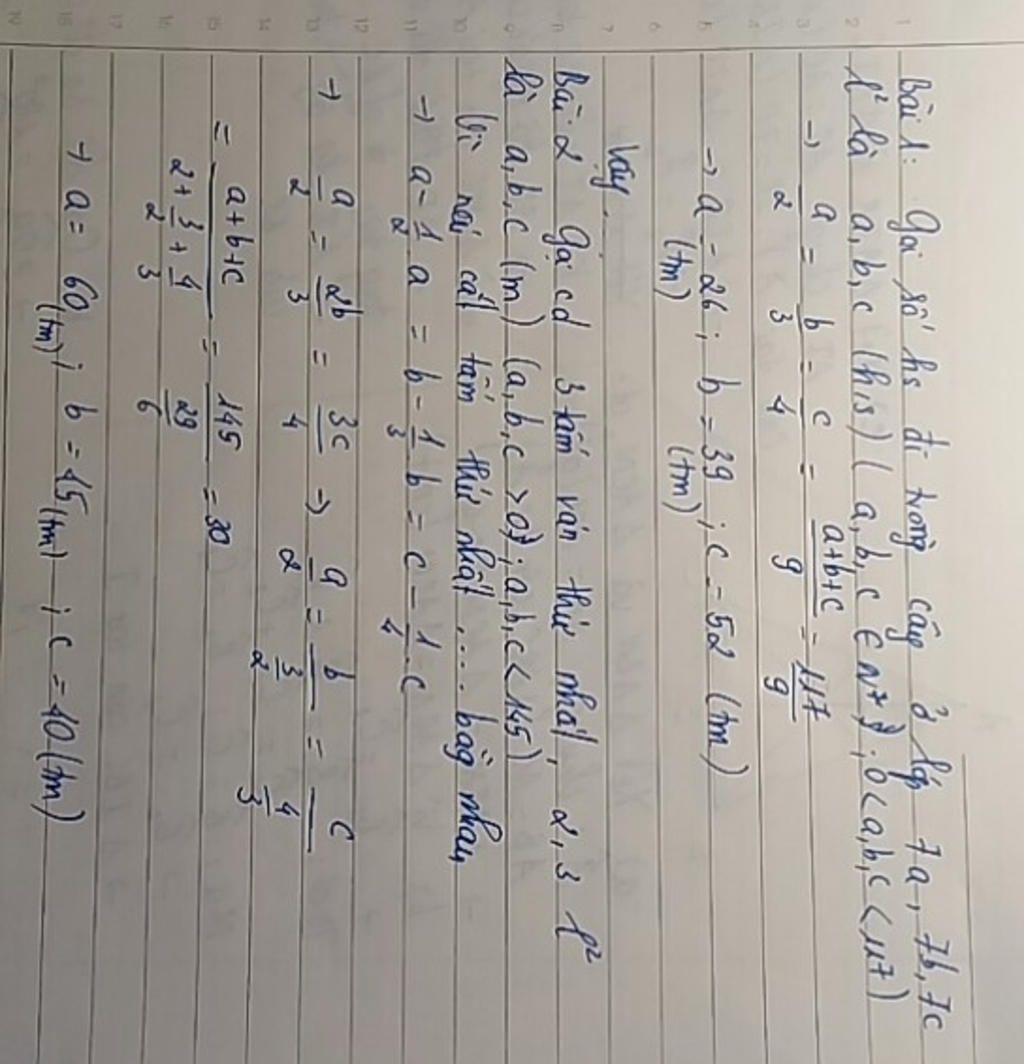 Bài 1: Gọi số hs đi trồng cây ở lớp 7a, 7b, 7c
l² là a, b, c (h,s) ( a, b, c ∈ N* ) ; 0 < a, b, c < 117 )
→ a/2 = b/3 = c/4 = a+b+c/9 = 117/9
→ a = 26 ; b = 39 ; c = 52 (tm)
(tm) (tm)
Vậy
Bài 2 Gọi cd 3 tấm ván thứ nhất, 2, 3 l²
là a, b, c (m) (a, b, c > 0 ; a, b, c < 145)
Vì nếu cắt tấm thứ nhất .... bằng nhau
→ a - 1/2 a = b - 1/3 b = c - 1/4 c
→ a/2 = 2b/3 = 3c/4 → a/2 = b/(3/2) = c/(4/3)
= a+b+c/(2 + 3/2 + 4/3) = 145/(29/6) = 30
→ a = 60 (tm) ; b = 45 (tm) ; c = 40 (tm)